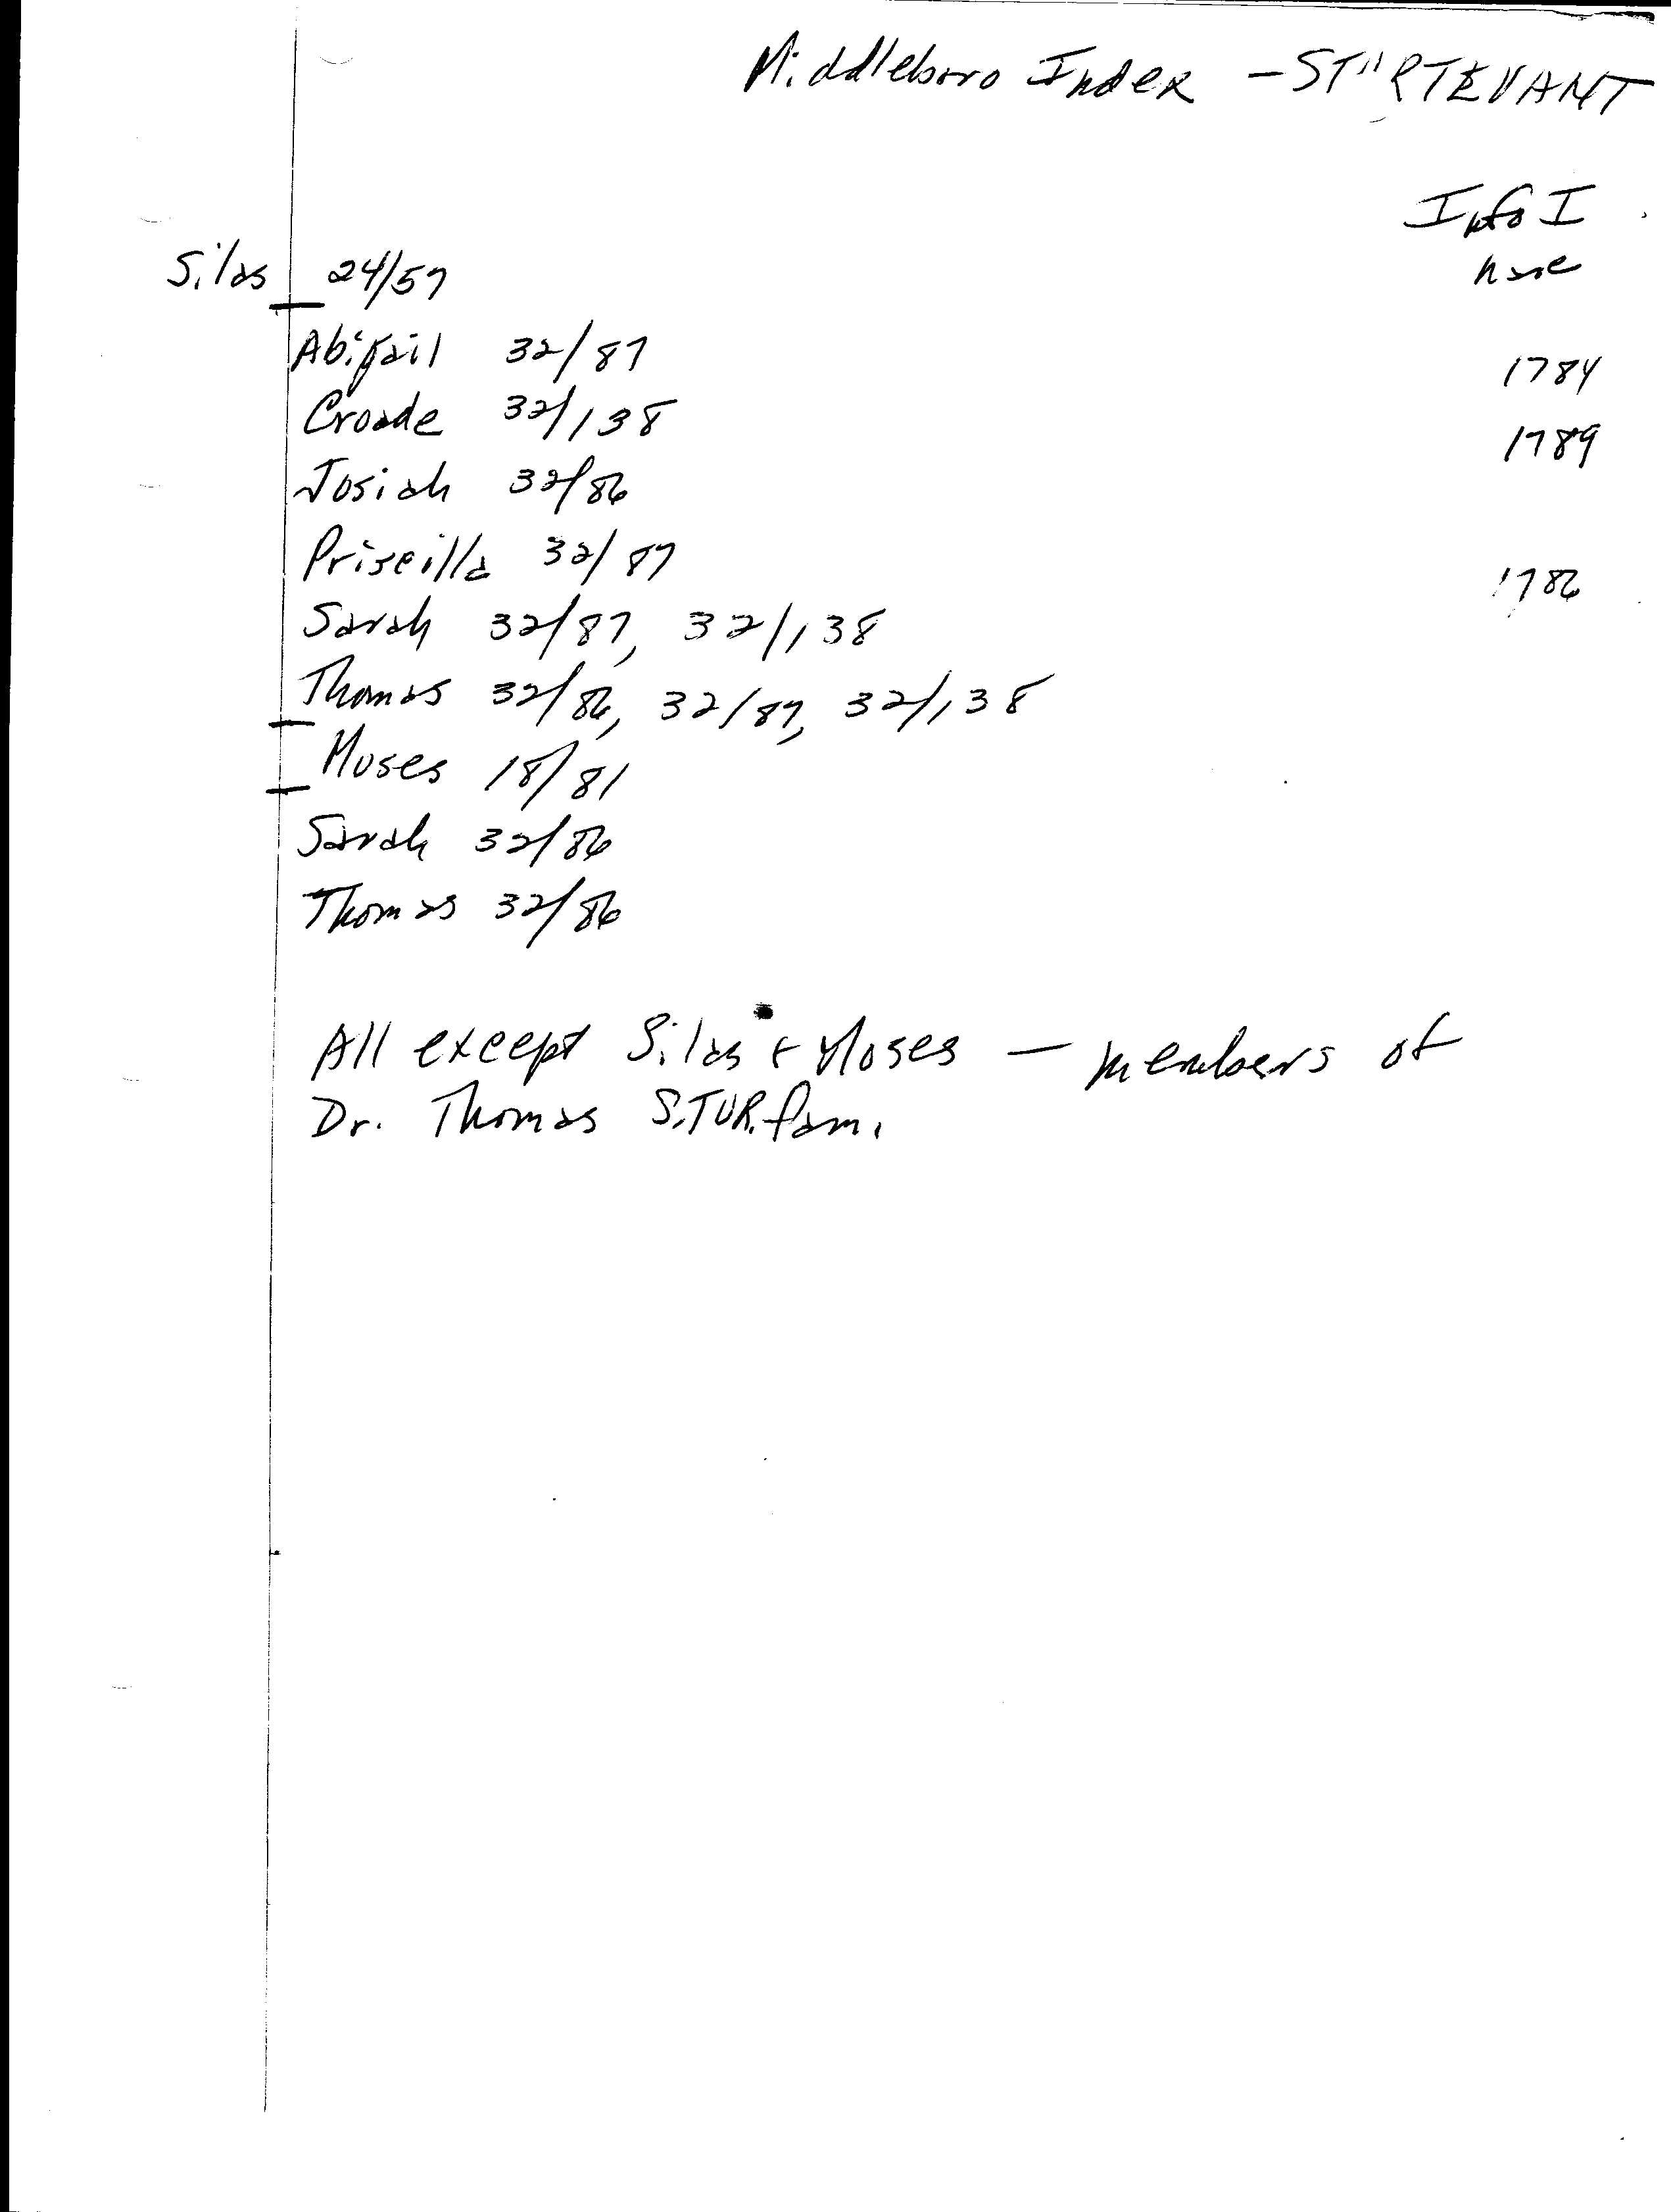 Middleboro Index - STURTEVANT
Info I
have
Silas 24/57
Abigail 32/87 1784
Croade 32/138 1789
Josiah 32/86
Priscilla 32/87 1786
Sarah 32/87, 32/138
Thomas 32/86, 32/87, 32/138
Moses 18/81
Sarah 32/86
Thomas 32/86
All except Silas & Moses — members of
Dr. Thomas STUR. fam.